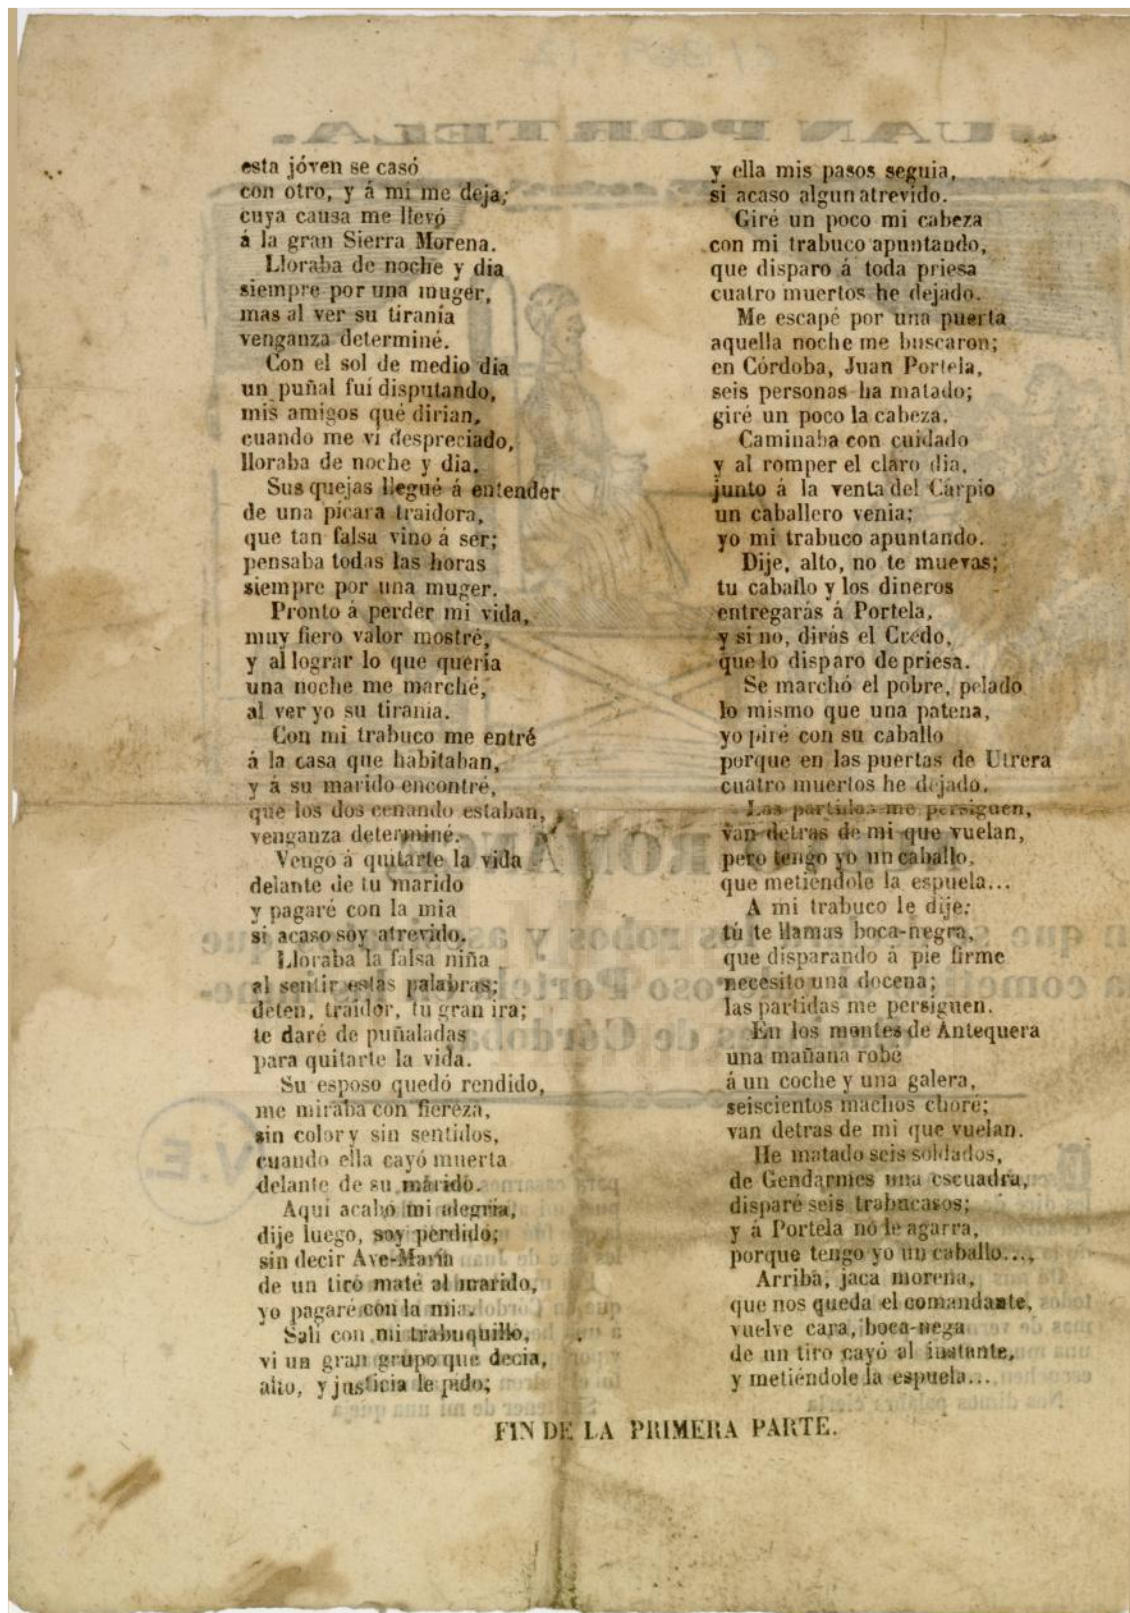 esta jóven se casó
con otro, y á mí me deja;
cuya causa me llevó
á la gran Sierra Morena.
Lloraba de noche y dia
siempre por una muger,
mas al ver su tiranía
venganza determiné.
Con el sol de medio dia
un puñal fuí disputando,
mis amigos qué dirian,
cuando me ví despreciado,
lloraba de noche y dia.
Sus quejas llegué á entender
de una pícara traidora,
que tan falsa vino á ser;
pensaba todas las horas
siempre por una muger.
Pronto á perder mi vida,
muy fiero valor mostré,
y al lograr lo que queria
una noche me marché,
al ver yo su tirania.
Con mi trabuco me entré
á la casa que habitaban,
y á su marido encontré,
que los dos cenando estaban,
venganza determiné.
Vengo á quitarte la vida
delante de tu marido
y pagaré con la mia
si acaso soy atrevido.
Lloraba la falsa niña
al sentir estas palabras;
deten, traidor, tu gran ira;
te daré de puñaladas
para quitarte la vida.
Su esposo quedó rendido,
me miraba con fiereza,
sin color y sin sentidos,
cuando ella cayó muerta
delante de su marido.
Aquí acabó mi alegria,
dije luego, soy perdido;
sin decir Ave-María
de un tiro maté al marido,
yo pagaré con la mia.
Salí con mi trabuquillo,
vi un gran grupo que decia,
alto, y justicia le pido;
y ella mis pasos seguia,
si acaso algun atrevido.
Giré un poco mi cabeza
con mi trabuco apuntando,
que disparo á toda priesa
cuatro muertos he dejado.
Me escapé por una puerta
aquella noche me buscaron;
en Córdoba, Juan Portela,
seis personas ha matado;
giré un poco la cabeza.
Caminaba con cuidado
y al romper el claro dia,
junto á la venta del Cárpio
un caballero venia;
yo mi trabuco apuntando.
Dije, alto, no te muevas;
tu caballo y los dineros
entregarás á Portela,
y si no, dirás el Credo,
que lo disparo de priesa.
Se marchó el pobre, pelado
lo mismo que una patena,
yo piré con su caballo
porque en las puertas de Utrera
cuatro muertos he dejado.
Las partidas me persiguen,
van detras de mi que vuelan,
pero tengo yo un caballo,
que metiéndole la espuela...
A mi trabuco le dije:
tú te llamas boca-negra,
que disparando á pie firme
necesito una docena;
las partidas me persiguen.
En los montes de Antequera
una mañana robé
á un coche y una galera,
seiscientos machos choré;
van detras de mi que vuelan.
He matado seis soldados,
de Gendarmes una escuadra,
disparé seis trabucasos;
y á Portela no le agarra,
porque tengo yo un caballo...,
Arriba, jaca morena,
que nos queda el comandante,
vuelve cara, boca-nega
de un tiro cayó al instante,
y metiéndole la espuela...
FIN DE LA PRIMERA PARTE.